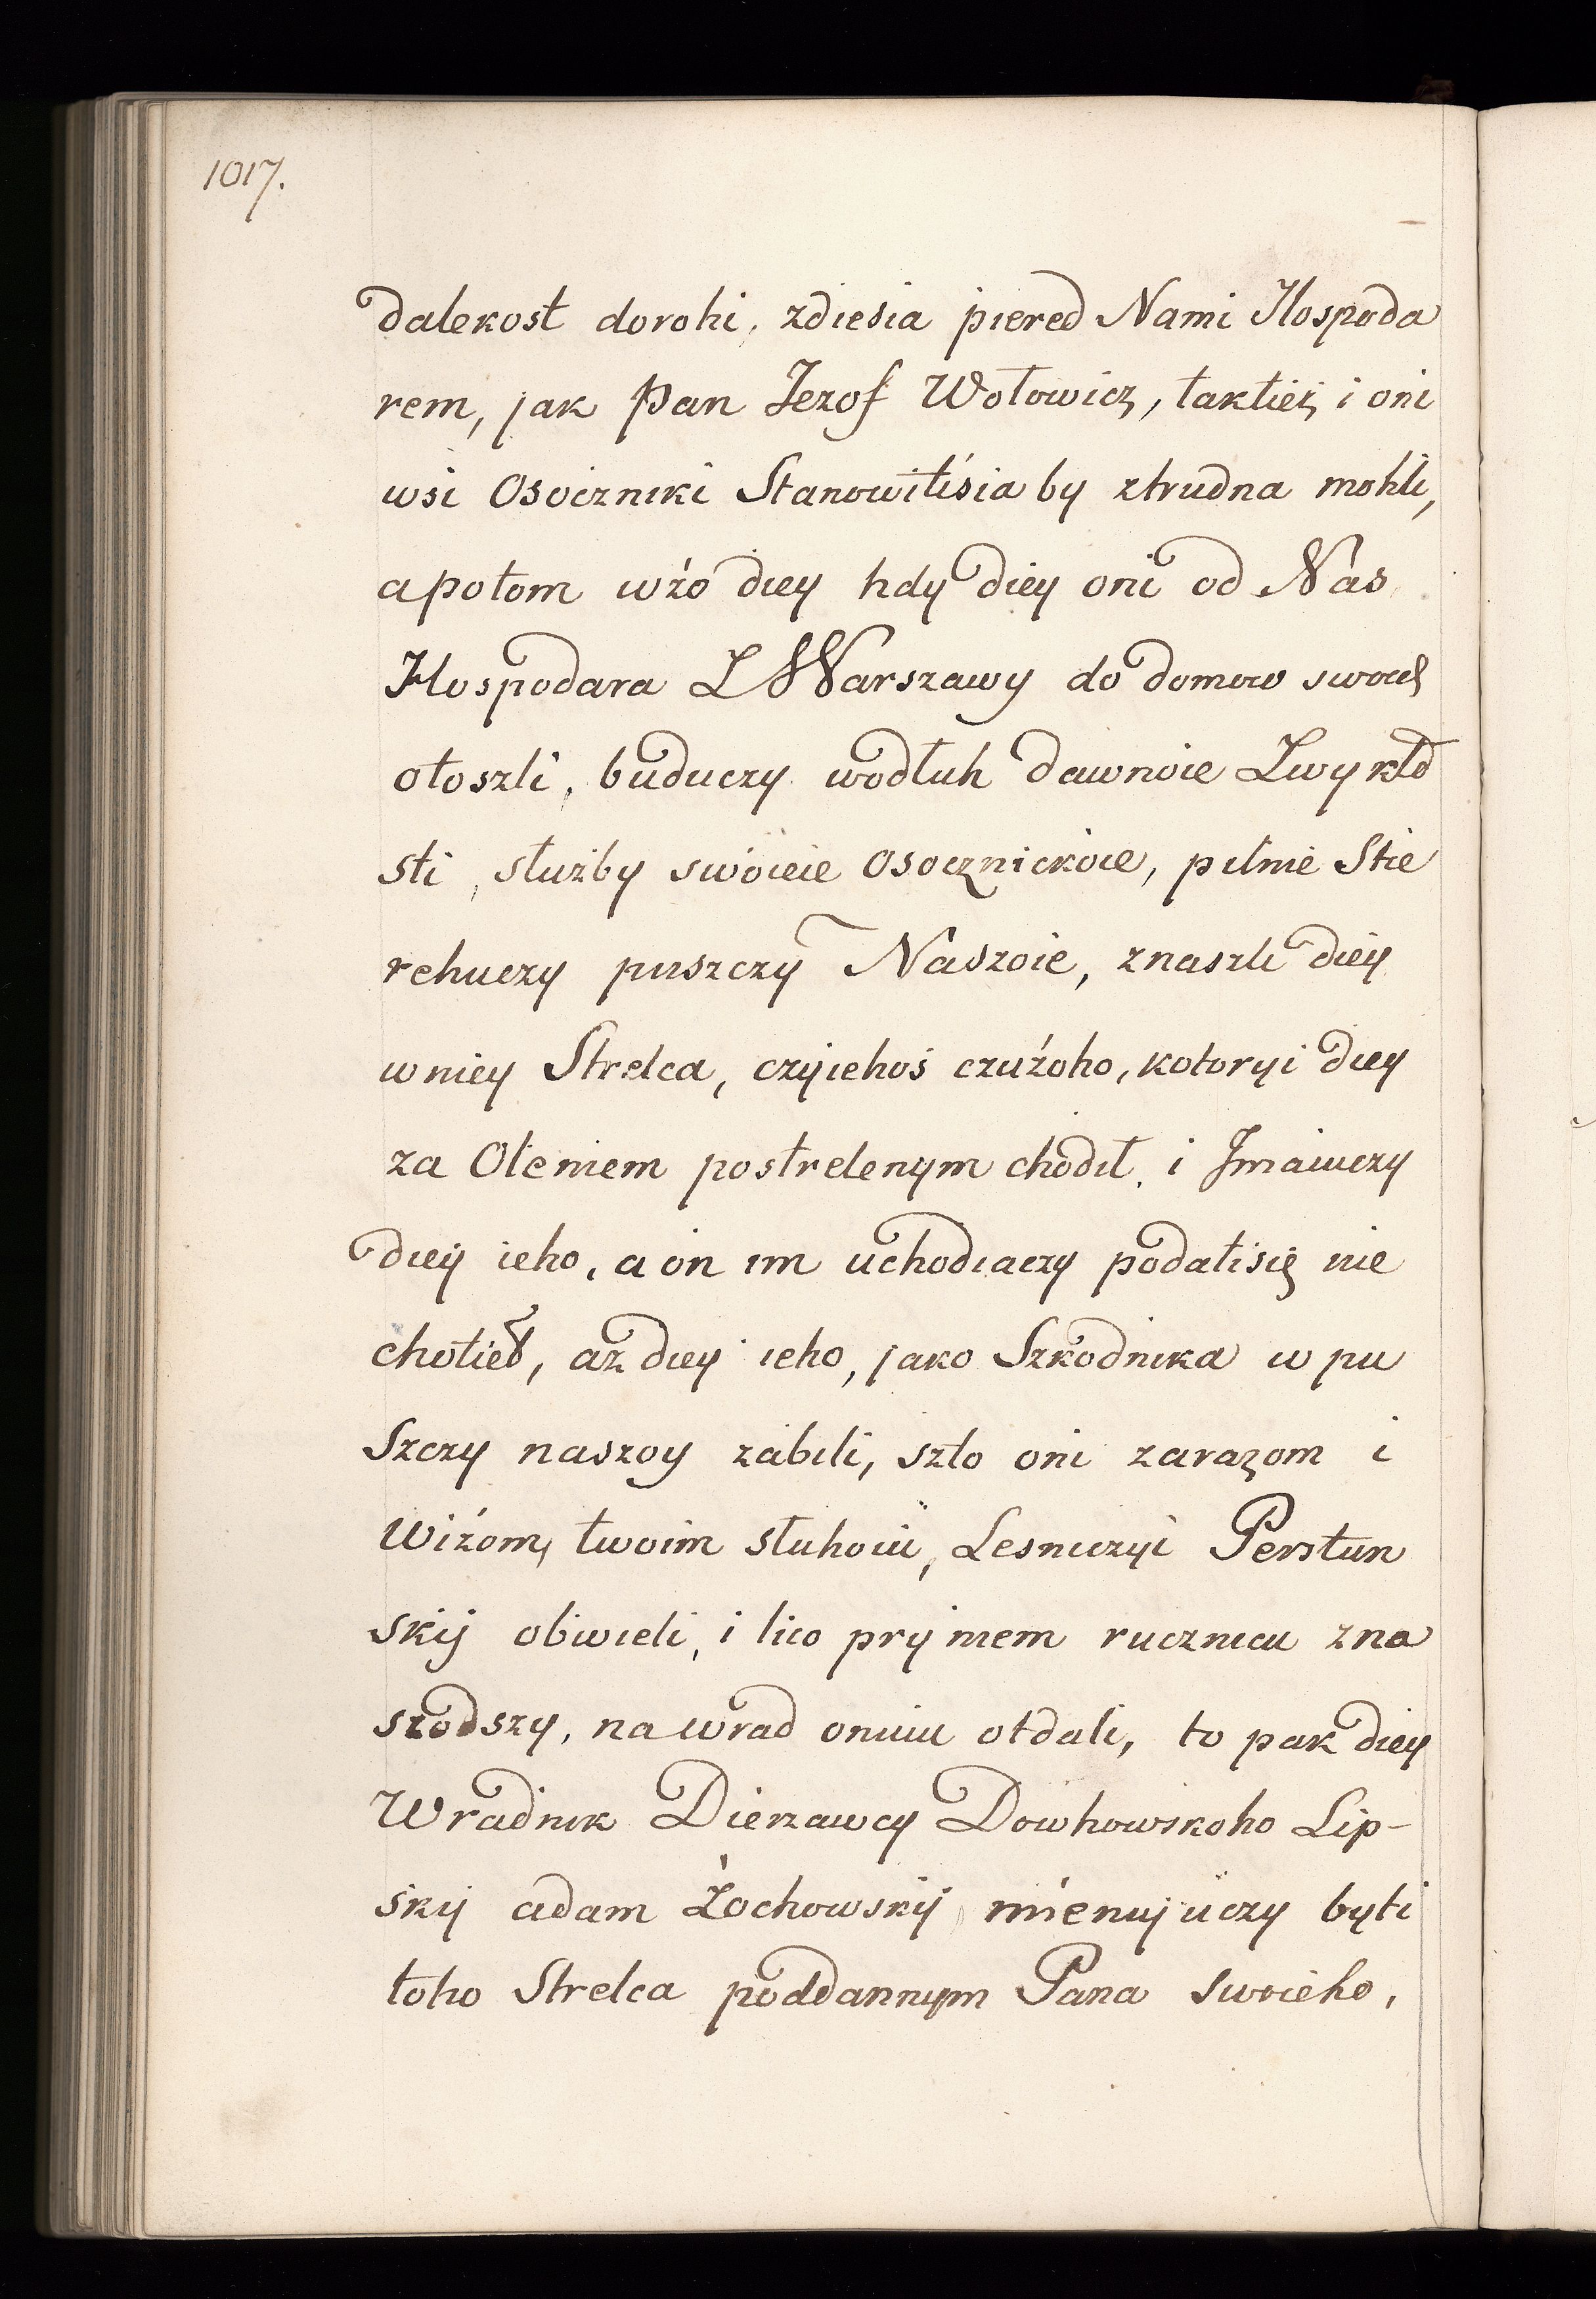 1017.
dalekost dorohi, zdiesia piered Nami Hospoda
rem, jak Pan Jezof Wołowicz, taktież i oni
wsi Osoczniki Stanowitisia by ztrudna mohli,
a potom wżo diey hdy diey oni od Nas
Hospodara Z Warszawy do domow swoich
otoszli, buduczy wodłuh dawnoie Zwykło
sti, służby swoieie Osocznickoie, pilnie Stie
rehuczy puszczy Naszoie, znaszli diey
w niey Strelca, czyiehoś czużoho, kotoryi diey
za Oleniem postrelenym chodił, i Jmaiuczy
diey ieho, a on im uchodiaczy podatisię nie
chotieł, aż diey ieho, jako Szkodnika w pu
Szczy naszoy zabili, szto oni zarazom i
Wiżom, twoim słuhoiu, Lesniczyi Perstun
skij obwieli, i lico pry niem rucznicu zna
szodszy, na wrad onuiu otdali, to pak diey
Wradnik Dierzawcy Dowhowskoho Lip-
skij adam Żochowskij mienujuczy byti
toho Strelca poddannym Pana Swoieho,